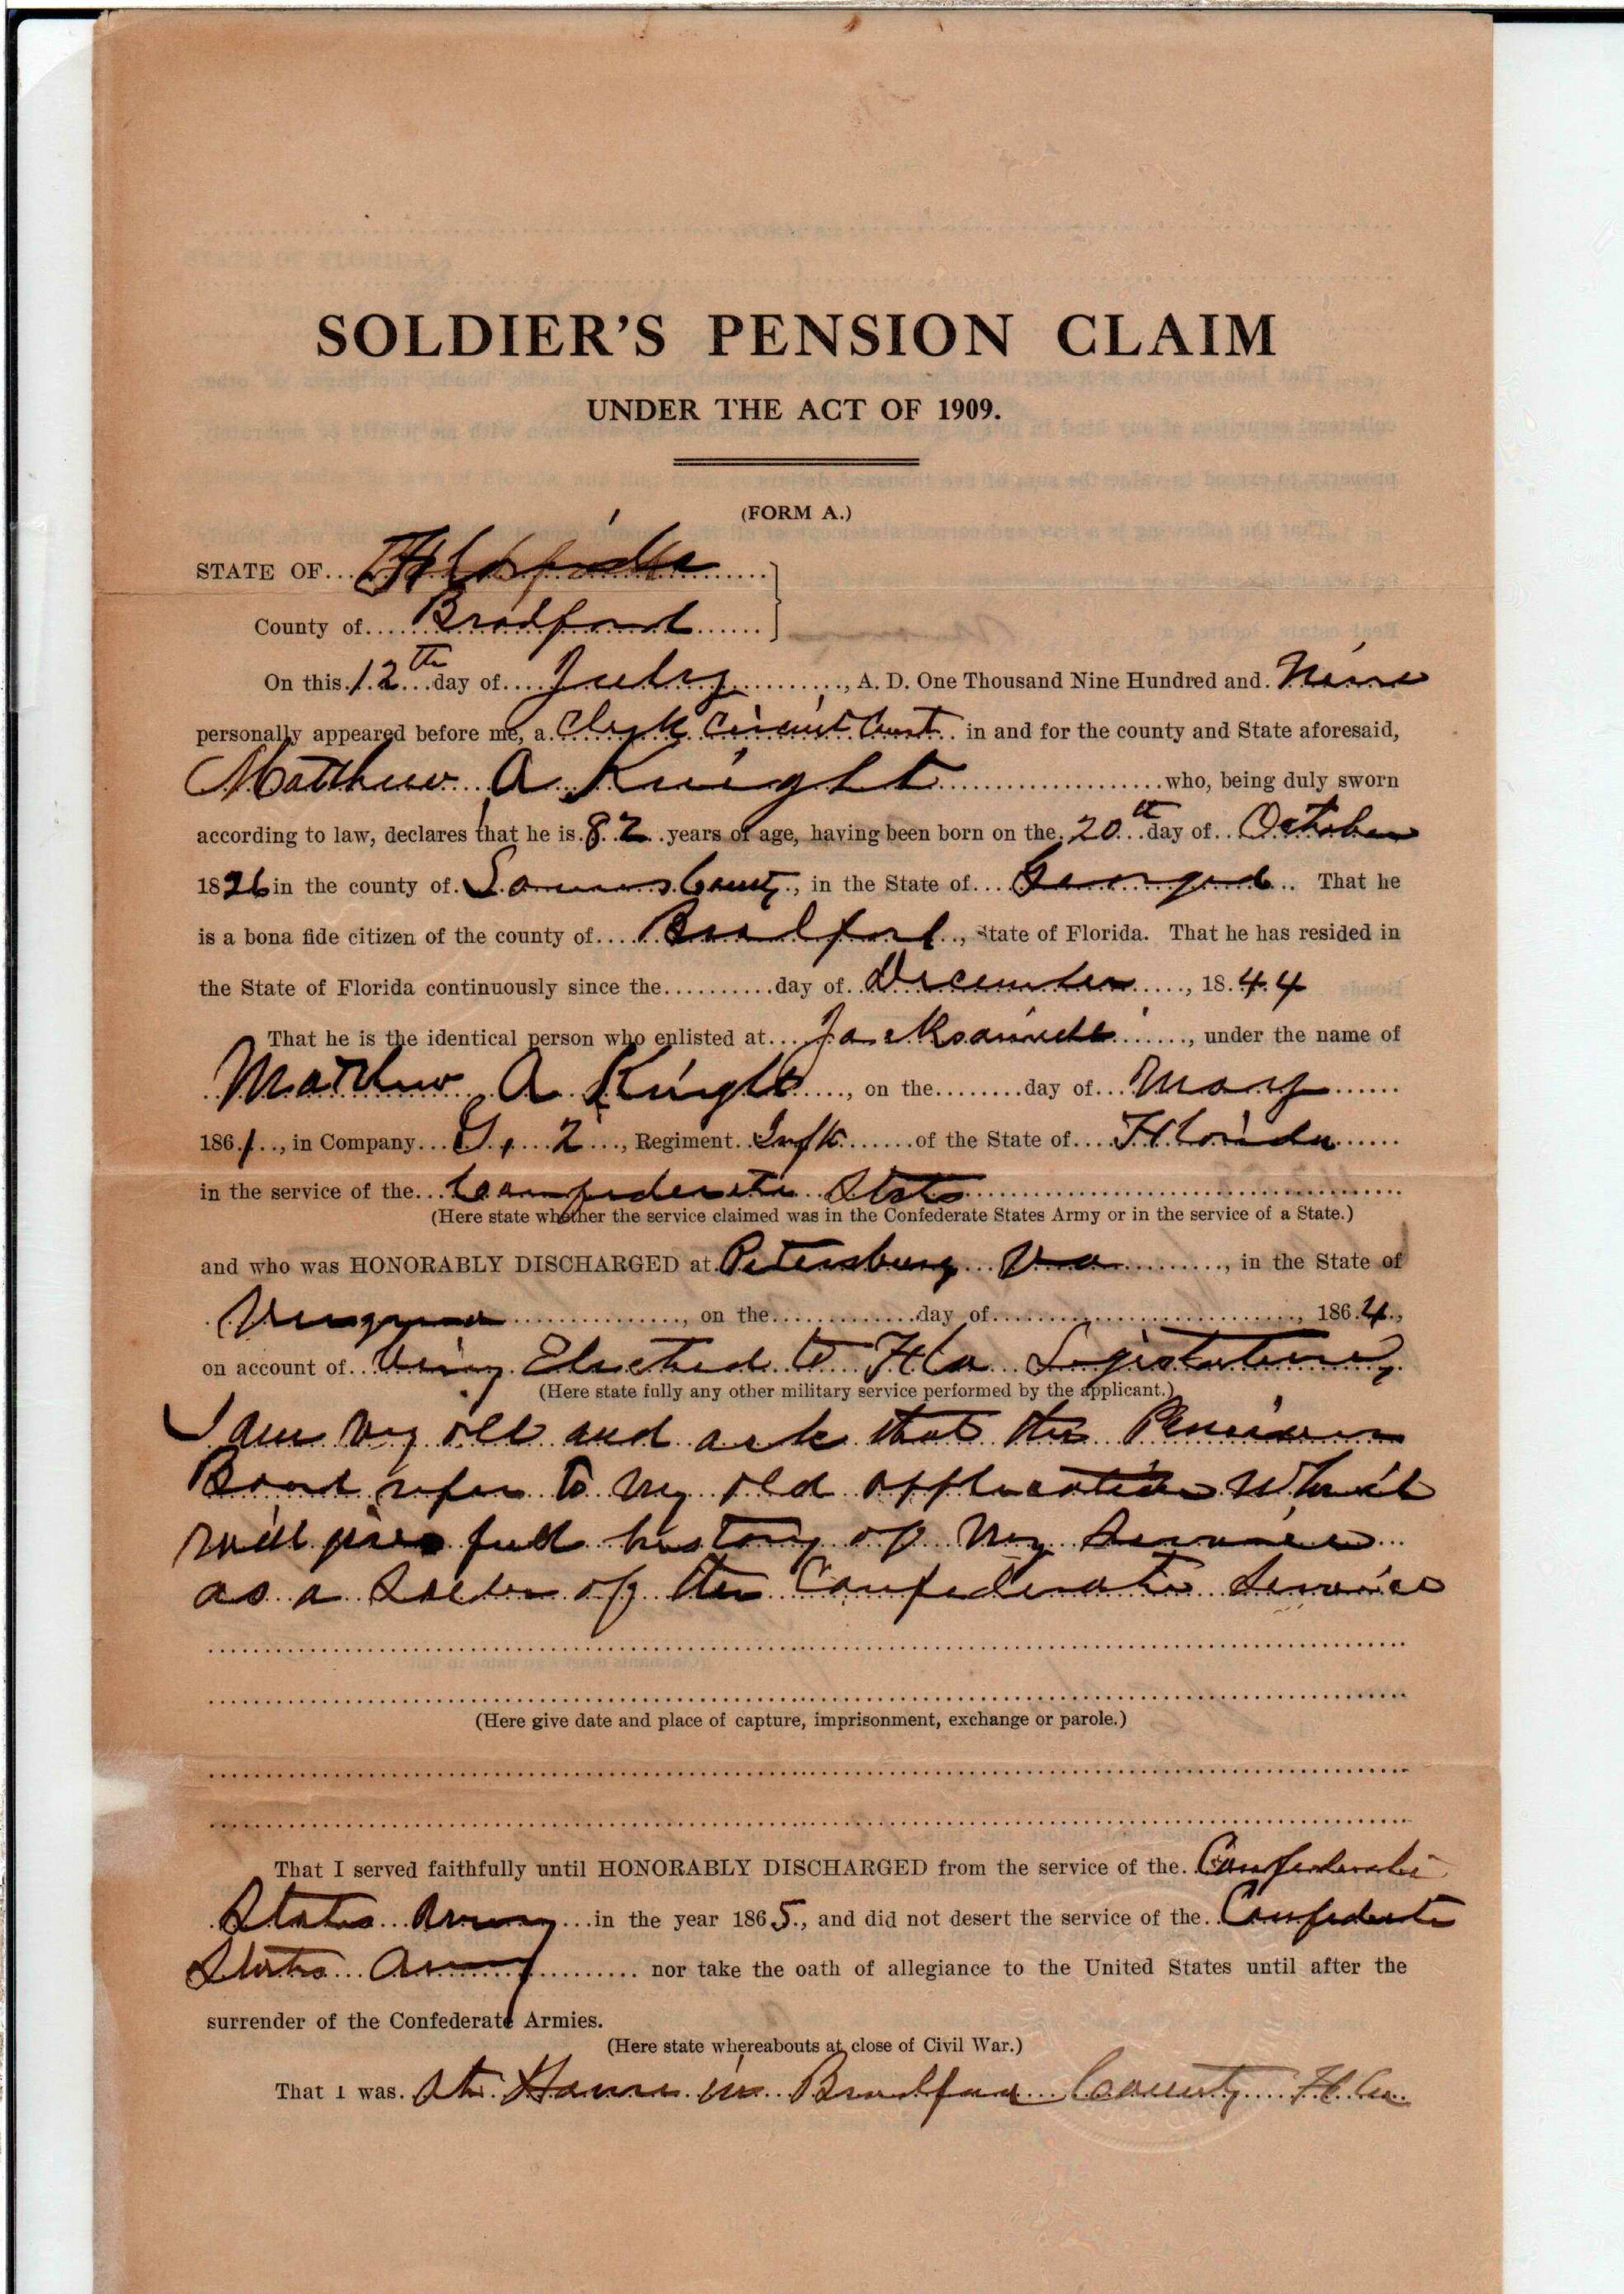 SOLDIER'S PENSION CLAIM
UNDER THE ACT OF 1909.
(FORM A.)
STATE OF Florida
County of Bradford
On this 12th day of July, A. D. One Thousand Nine Hundred and Nine
personally appeared before me, a Clerk Circuit Court in and for the county and State aforesaid,
Matthew A Knight who, being duly sworn
according to law, declares that he is 82 years of age, having been born on the 20th day of October
1826 in the county of County, in the State of Georgia That he
is a bona fide citizen of the county of Bradford, State of Florida. That he has resided in
the State of Florida continuously since the day of December, 1844
That he is the identical person who enlisted at Jacksonville, under the name of
Matthew A Knight, on the day of May
1861, in Company G, 2, Regiment Infty of the State of Florida
in the service of the Confederate States
(Here state whether the service claimed was in the Confederate States Army or in the service of a State.)
and who was HONORABLY DISCHARGED at Petersburg Va, in the State of
Virginia, on the day of, 1864,
on account of being Elected to Fla Legislature,
(Here state fully any other military service performed by the applicant.)
I am very old and ask that the Pension
Board refer to my old application which
will give full history of my Service
as a Soldier of the Confederate Service
(Here give date and place of capture, imprisonment, exchange or parole.)
That I served faithfully until HONORABLY DISCHARGED from the service of the Confederate
States Army in the year 1865, and did not desert the service of the Confederate
States Army nor take the oath of allegiance to the United States until after the
surrender of the Confederate Armies.
(Here state whereabouts at close of Civil War.)
That I was At Home in Bradford County Fla